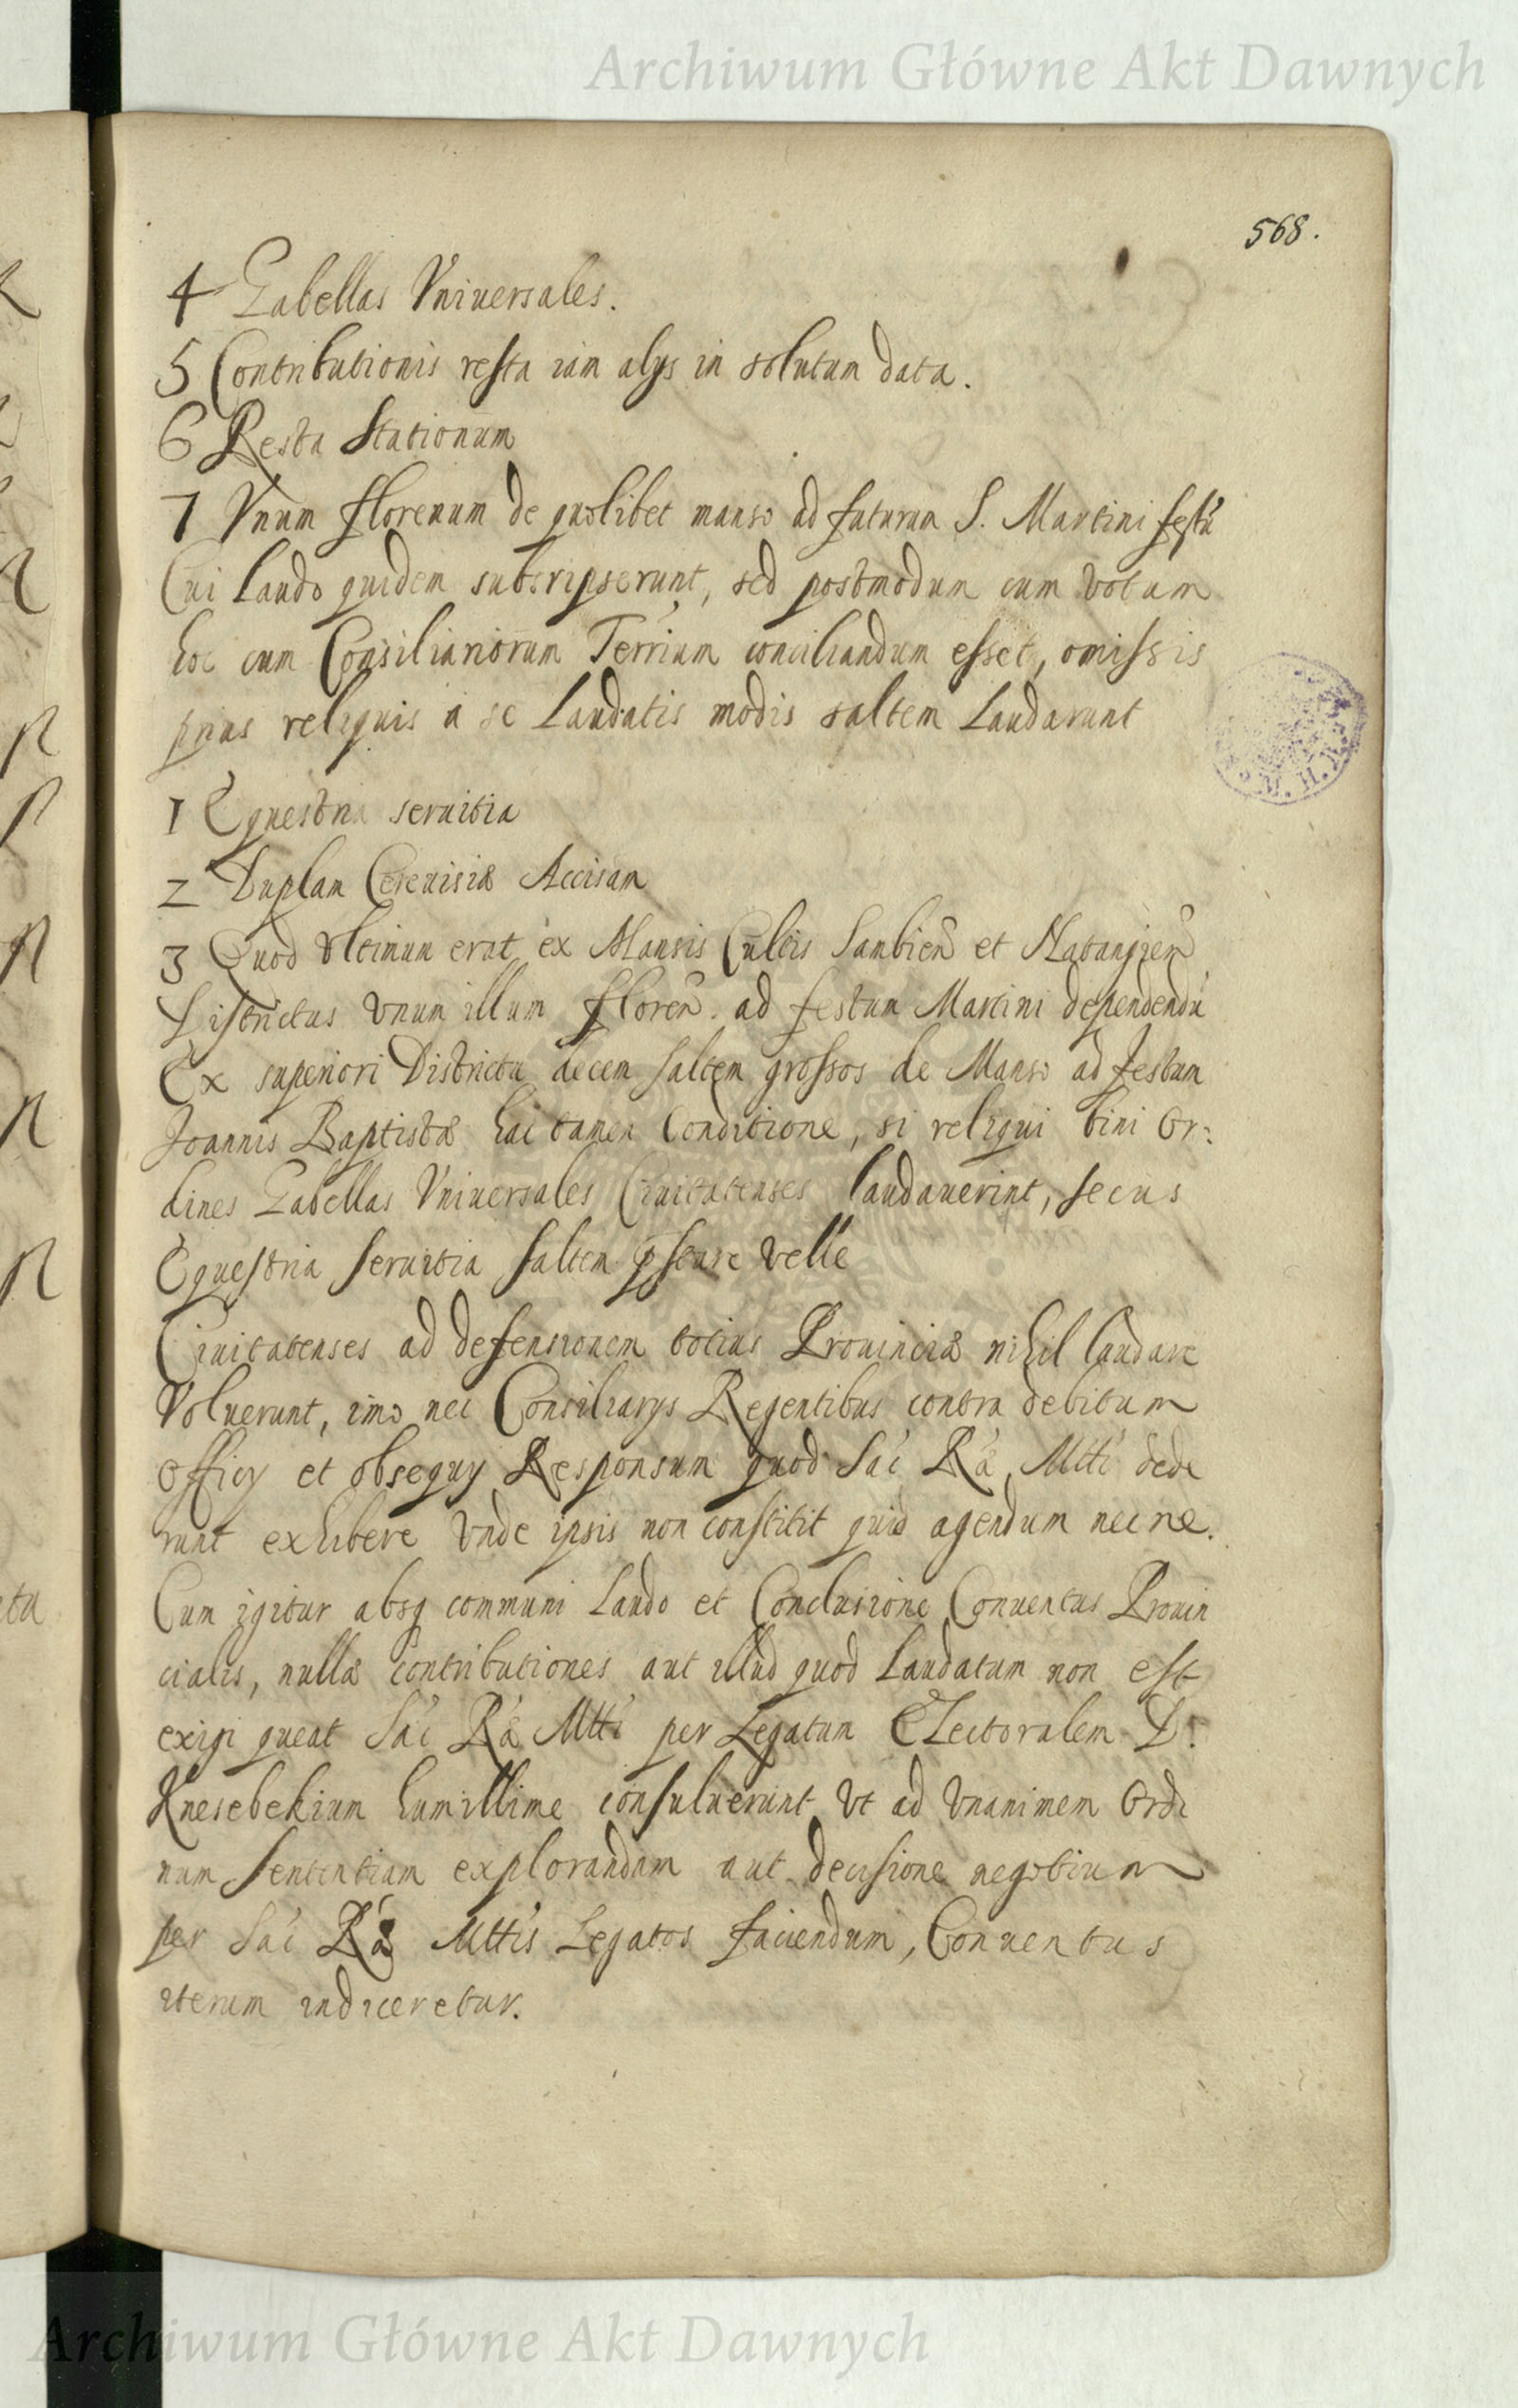 Archiwum Główne Akt Dawnych
568.
4 Gabellas Vniuersales.
5 Contributionis resta iam alijs in solutum data.
6 Resta Stationum
7 Vnum florenum de quolibet manso ad futurum S. Martini festũ
Cui Laudo quidem subscripserunt, sed postmodum cum votum
hoc cum Consiliariorum Terrium conciliandum esset, omissis
prius reliquis a se Laudatis modis saltem Laudarunt
1 Equestria seruitia
2 Duplam Cereuisiæ Accisam
3 Quod vltimum erat ex Mansis Cultis Sambien̄ et Natangien̄
Districtus vnum illum floren̄. ad festum Martini dependendũ
Ex superiori Districtu decem saltem grossos de Manso ad festum
Joannis Baptistæ hac tamen Conditione, si reliqui bini Or:
dines Gabellas Vniuersales Ciuitatenses laudauerint, secus
Equestria seruitia saltem p̱stare velle
Ciuitatenses ad defensionem totius Prouinciæ nihil laudare
Voluerunt, imo nec Consiliarijs Regentibus contra debitum
Officij et obsequij Responsum quod Sac̓ Ra̓ Mtti̓ dede
runt exhibere vnde ipsis non constitit quid agendum nec ne.
Cum igitur absq communi Laudo et Conclusione Conuentus Prouin
cialis, nullæ contributiones aut illud quod Laudatum non est
exigi queat Sac̓ Ra̓ Mtti̓ per Legatum Electoralem D.
Knesebekium humillime consuluerunt vt ad vnanimem Ordi
num sententiam explorandam aut decisione negotium
per Sac̓ Ra̓ Mttis Legatos faciendum, Conuentus
iterum indiceretur.
Archiwum Główne Akt Dawnych